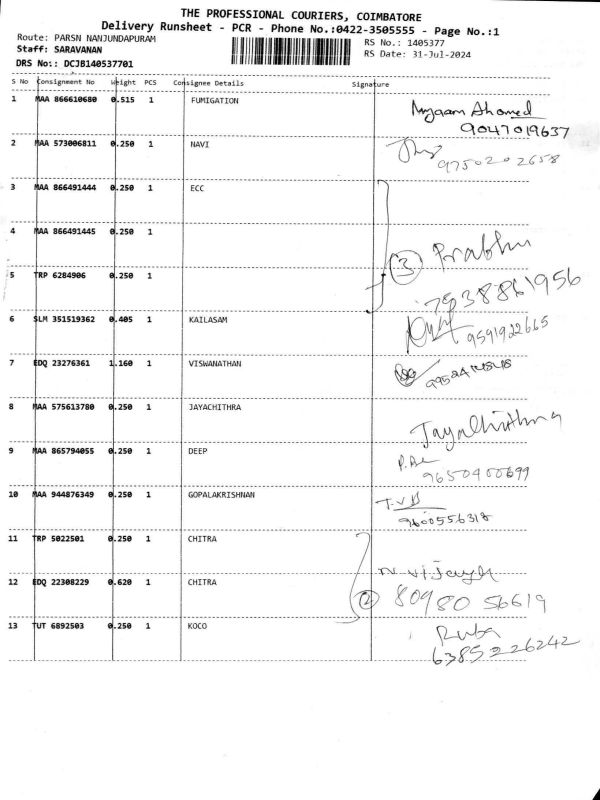 THE PROFESSIONAL COURIERS, COIMBATORE
Delivery Runsheet - PCR - Phone No.:0422-3505555 - Page No.:1
Route: PARSN NANJUNDAPURAM
RS No.: 1405377
Staff: SARAVANAN
RS Date: 31-Jul-2024
DRS No:: DCJB140537701
S No Consignment No Weight PCS Consignee Details Signature
1 MAA 866610680 0.515 1 FUMIGATION
Ahamed
9047019637
2 MAA 573006811 0.250 1 NAVI
9750202658
3 MAA 866491444 0.250 1 ECC
4 MAA 866491445 0.250 1
3 Prabhu
5 TRP 6284906 0.250 1
7538861956
6 SLM 351519362 0.405 1 KAILASAM
9591922665
7 EDQ 23276361 1.160 1 VISWANATHAN
8 MAA 575613780 0.250 1 JAYACHITHRA
Jayachithra
9 MAA 865794055 0.250 1 DEEP
9650400699
10 MAA 944876349 0.250 1 GOPALAKRISHNAN
T.V.B
9600556318
11 TRP 5022501 0.250 1 CHITRA
12 EDQ 22308229 0.620 1 CHITRA
2 80980 56619
13 TUT 6892503 0.250 1 KOCO
Ruba
6385226242